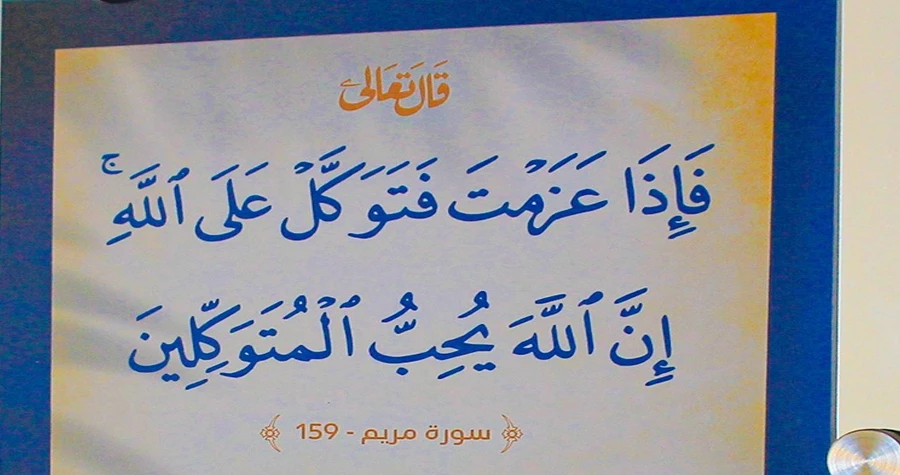 قَالَ تَعَالَىٰ
فَإِذَا عَزَمۡتَ فَتَوَكَّلۡ عَلَى ٱللَّهِۚ
إِنَّ ٱللَّهَ يُحِبُّ ٱلۡمُتَوَكِّلِينَ
سورة مريم - 159